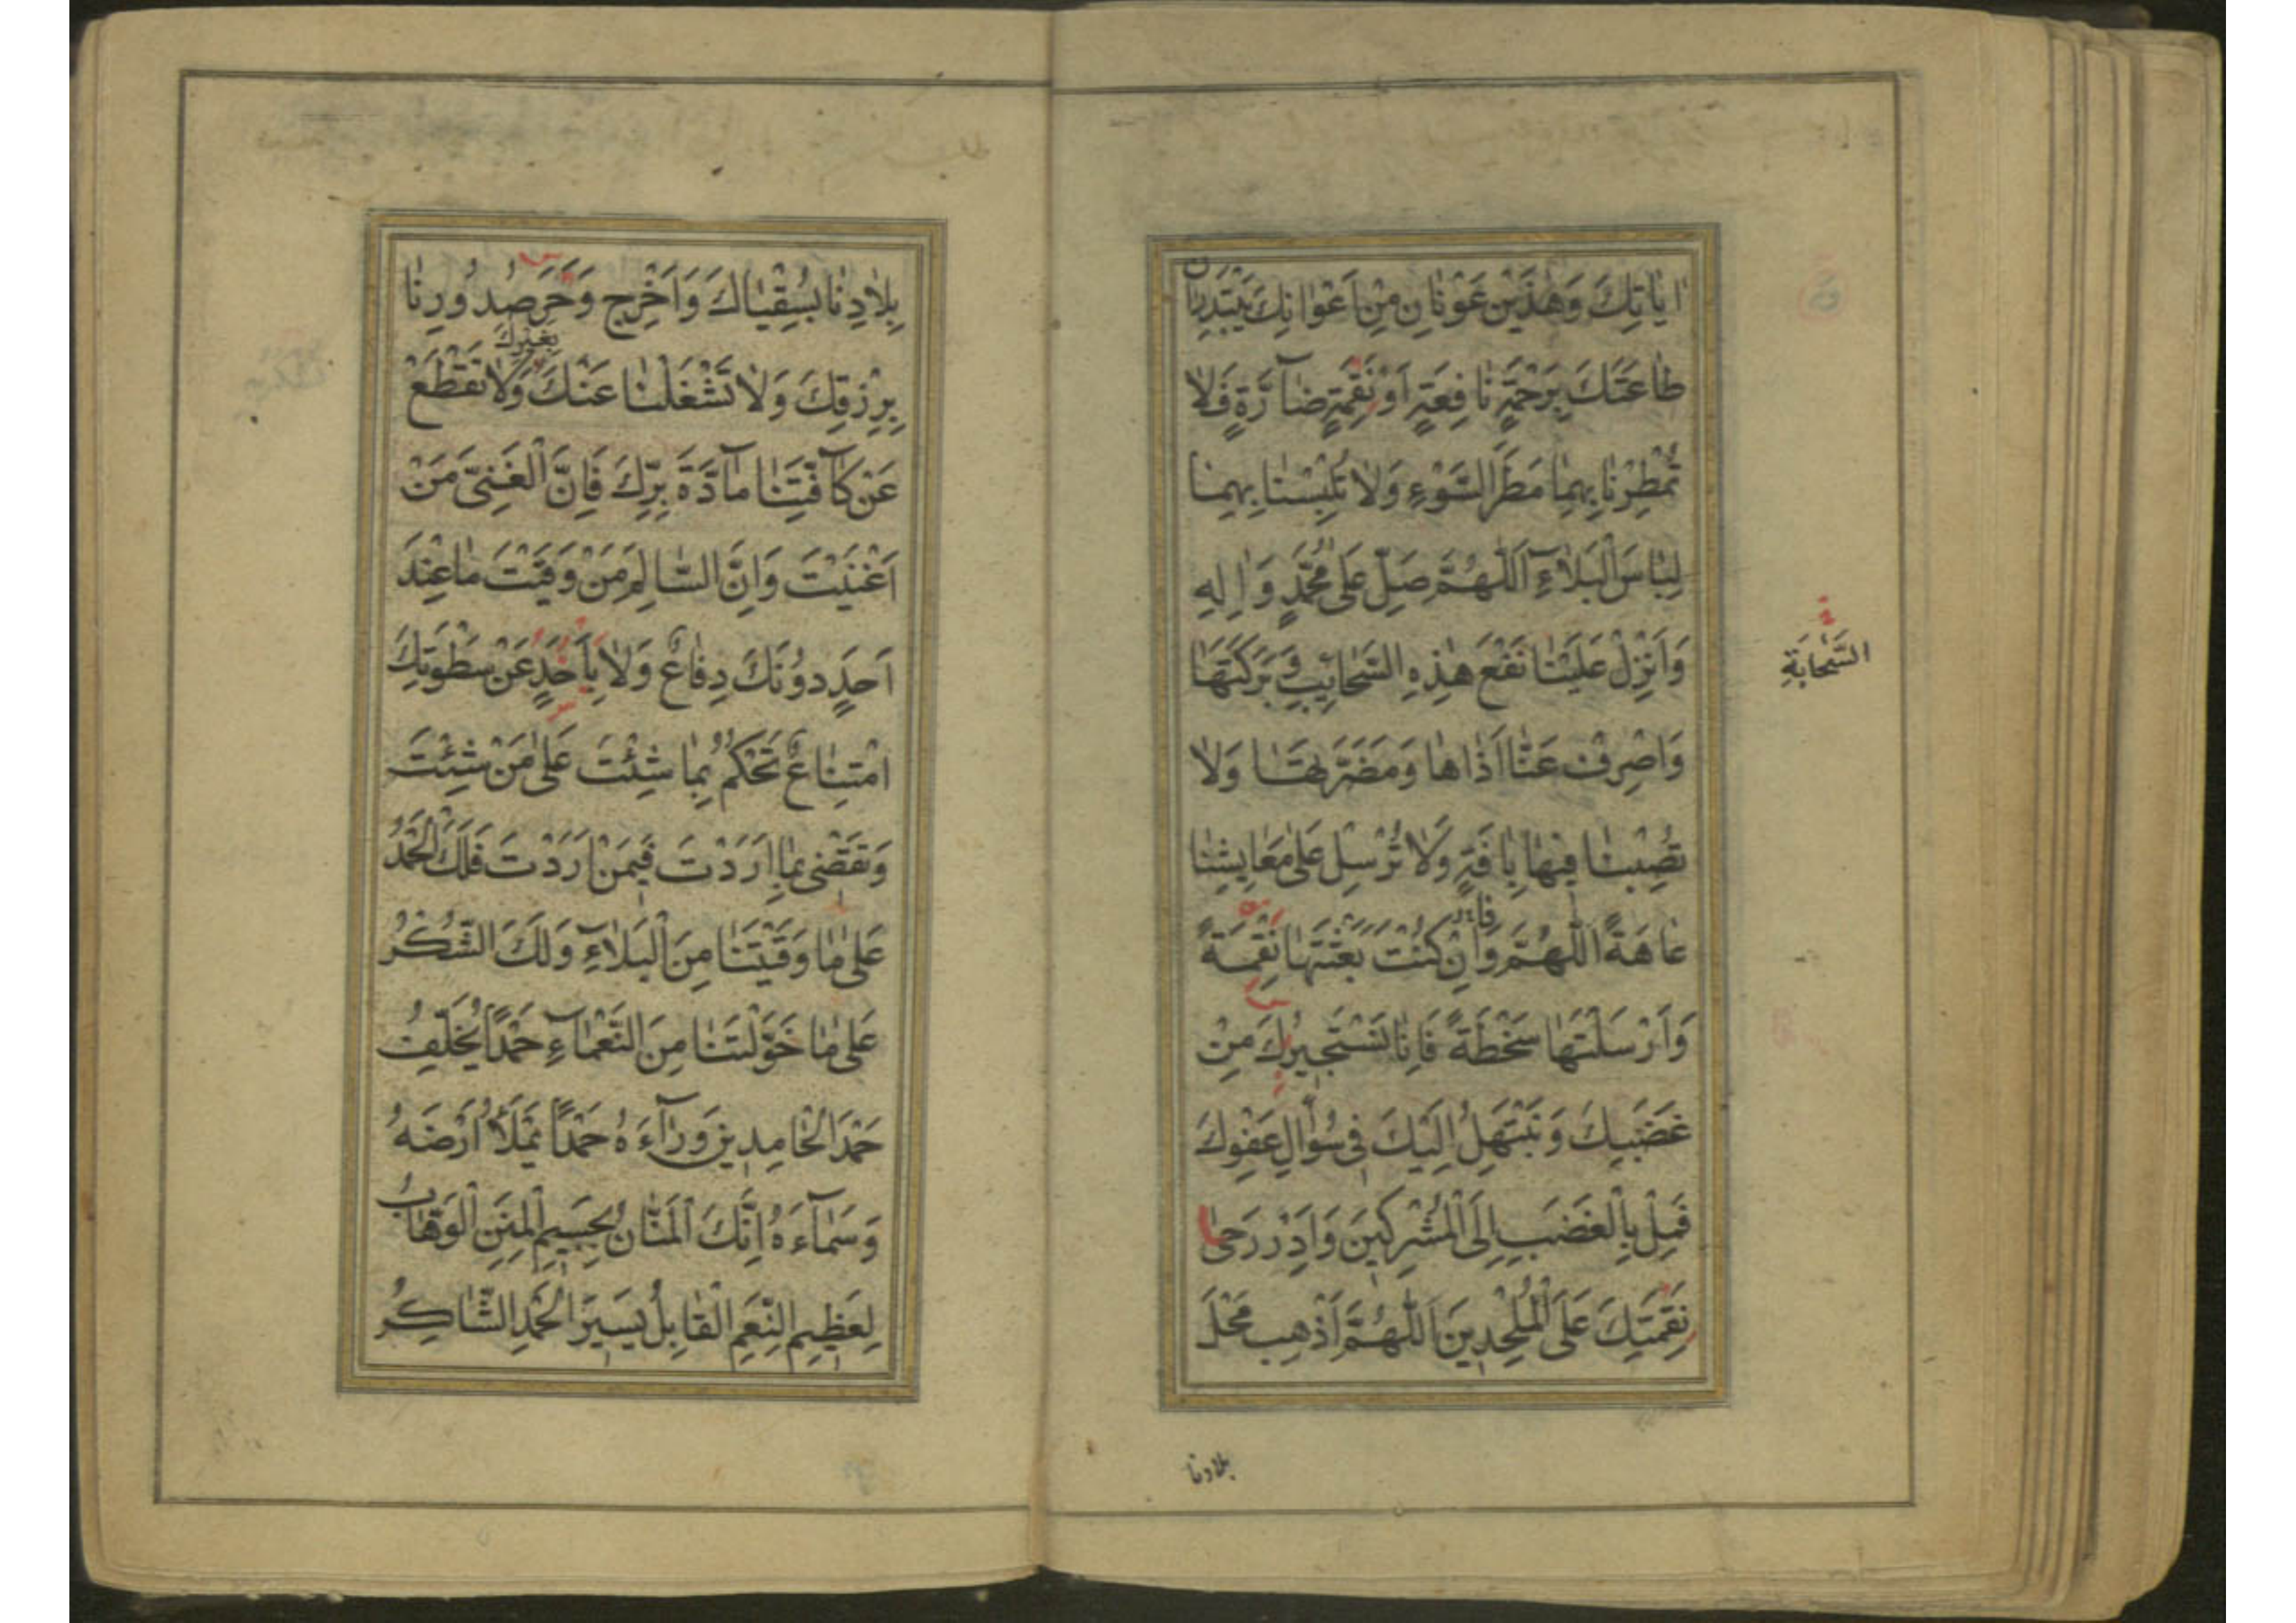 اٰيَاتِكَ وَهٰذَيْنِ عَوْنَانِ مِنْ اَعْوَانِكَ يَبْتَدِرَانِ
طَاعَتَكَ بِرَحْمَةٍ نَافِعَةٍ اَوْ نَقِمَةٍ ضَآرَّةٍ فَلَا
تُمْطِرْنَا بِهِمَا مَطَرَ السَّوْءِ وَلَا تُلْبِسْنَا بِهِمَا
لِبَاسَ الْبَلَآءِ اَللّٰهُمَّ صَلِّ عَلٰى مُحَمَّدٍ وَاٰلِهِ
وَاَنْزِلْ عَلَيْنَا نَفْعَ هٰذِهِ السَّحَائِبِ وَبَرَكَتَهَا
السَّحَابَةِ
وَاصْرِفْ عَنَّا اَذَاهَا وَمَضَرَّتَهَا وَلَا
تُصِبْنَا فِيهَا بِاٰفَةٍ وَلَا تُرْسِلْ عَلٰى مَعَايِشِنَا
عَاهَةً اَللّٰهُمَّ وَاِنْ كُنْتَ بَعَثْتَهَا نَقِمَةً
وَاَرْسَلْتَهَا سَخْطَةً فَاِنَّا نَسْتَجِيرُكَ مِنْ
غَضَبِكَ وَنَبْتَهِلُ اِلَيْكَ فِي سُؤَالِ عَفْوِكَ
فَمِلْ بِالْغَضَبِ اِلَى الْمُشْرِكِينَ وَاَدِرْ رَحٰى
نَقِمَتِكَ عَلَى الْمُلْحِدِينَ اَللّٰهُمَّ اَذْهِبْ مَحْلَ
بلادنا
بِلَادِنَا بِسُقْيَاكَ وَاَخْرِجْ وَحَرَ صُدُورِنَا
بِرِزْقِكَ وَلَا تَشْغَلْنَا عَنْكَ بِغَيْرِكَ وَلَا تَقْطَعْ
عَنْ كَآفَّتِنَا مَآدَّةَ بِرِّكَ فَاِنَّ الْغَنِيَّ مَنْ
اَغْنَيْتَ وَاِنَّ السَّالِمَ مَنْ وَقَيْتَ مَا عِنْدَ
اَحَدٍ دُونَكَ دِفَاعٌ وَلَا بِاَحَدٍ عَنْ سَطْوَتِكَ
امْتِنَاعٌ تَحْكُمُ بِمَا شِئْتَ عَلٰى مَنْ شِئْتَ
وَتَقْضِي بِمَا اَرَدْتَ فِيمَنْ اَرَدْتَ فَلَكَ الْحَمْدُ
عَلٰى مَا وَقَيْتَنَا مِنَ الْبَلَآءِ وَلَكَ الشُّكْرُ
عَلٰى مَا خَوَّلْتَنَا مِنَ النَّعْمَآءِ حَمْدًا يُخَلِّفُ
حَمْدَ الْحَامِدِينَ وَرَآءَهُ حَمْدًا يَمْلَأُ اَرْضَهُ
وَسَمَآءَهُ اِنَّكَ الْمَنَّانُ بِجَسِيمِ الْمِنَنِ الْوَهَّابُ
لِعَظِيمِ النِّعَمِ الْقَابِلُ يَسِيرَ الْحَمْدِ الشَّاكِرُ